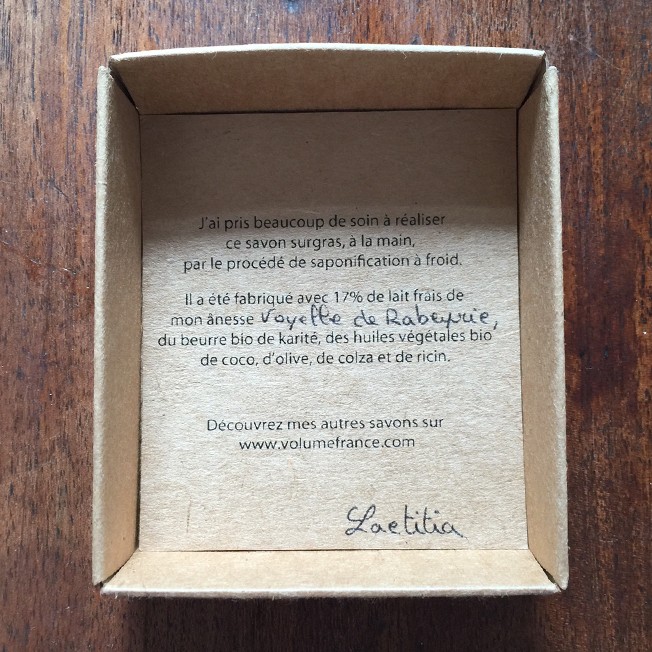 J'ai pris beaucoup de soin à réaliser
ce savon surgras, à la main,
par le procédé de saponification à froid.
Il a été fabriqué avec 17% de lait frais de
mon ânesse Voyelle de Rabeyrie,
du beurre bio de karité, des huiles végétales bio
de coco, d'olive, de colza et de ricin.
Découvrez mes autres savons sur
www.volumefrance.com
Laetitia